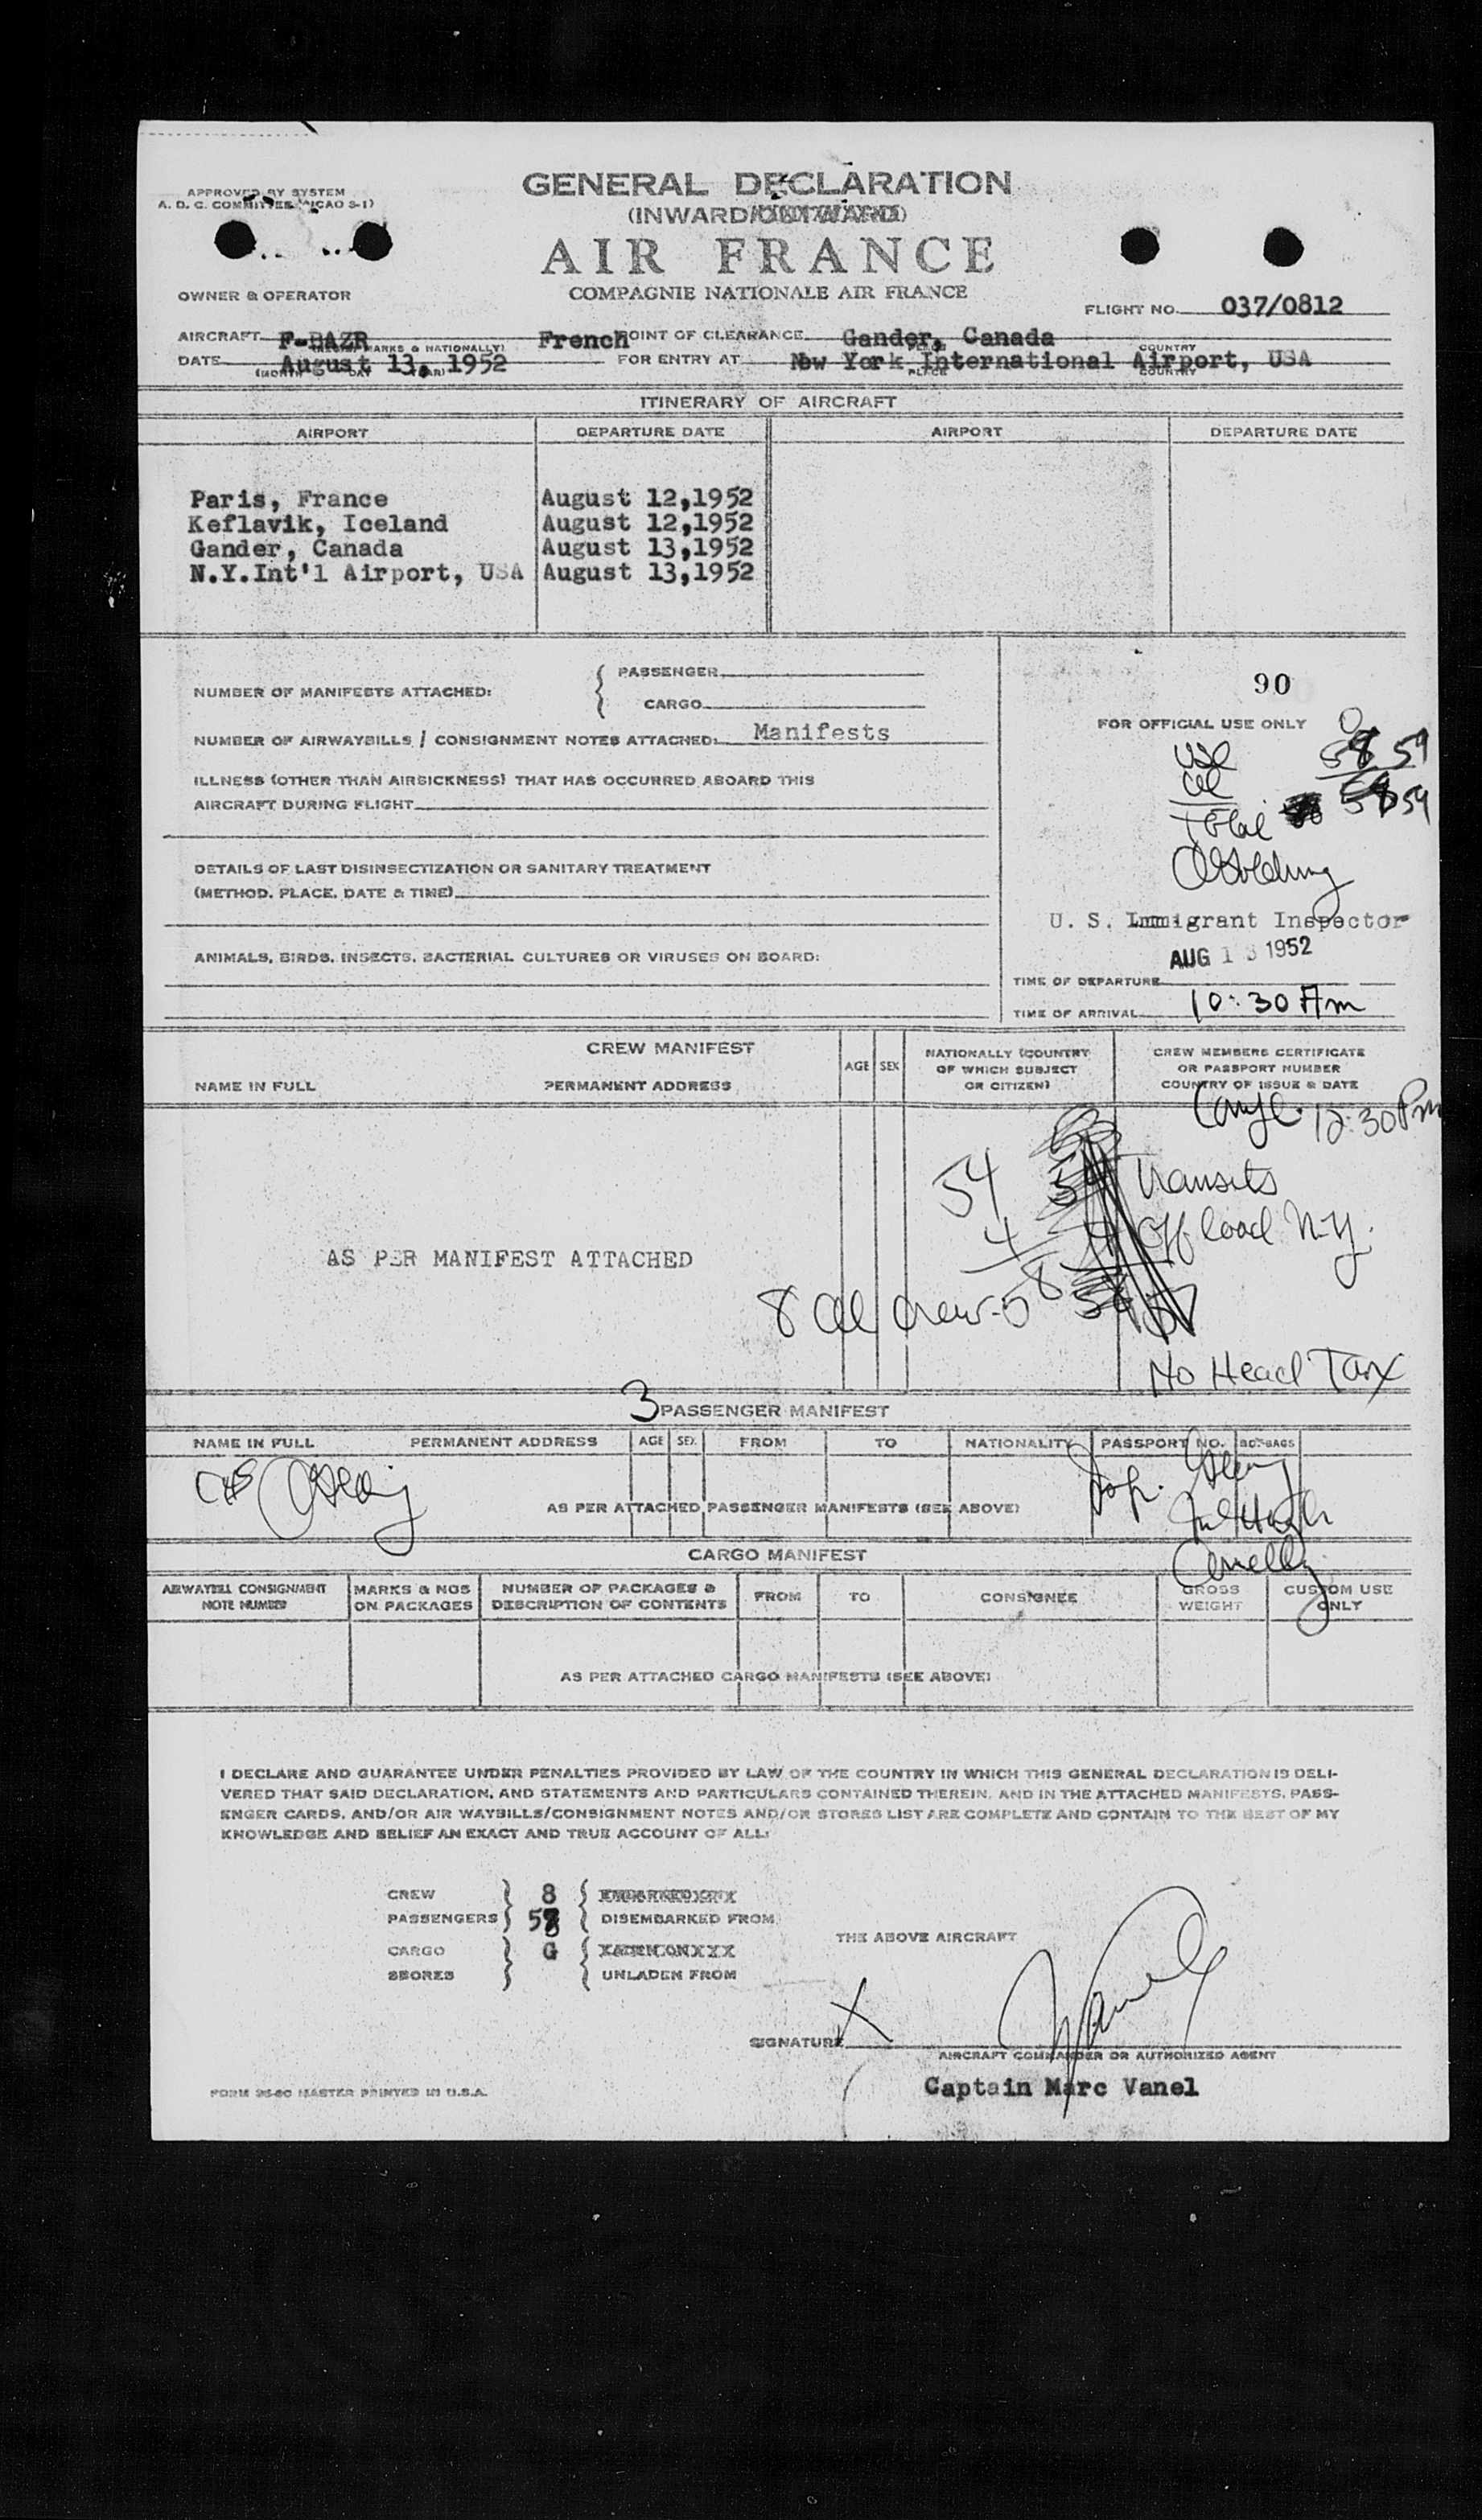 APPROVED BY SYSTEM
A. D. C. COMMITTEE (ICAO 3-1)
GENERAL DECLARATION
(INWARD/OUTWARD)
AIR FRANCE
COMPAGNIE NATIONALE AIR FRANCE
OWNER & OPERATOR
FLIGHT NO. 037/0812
AIRCRAFT F-BAZR French POINT OF CLEARANCE Gander, Canada
(MARKS & NATIONALLY) PLACE COUNTRY
DATE August 13, 1952 FOR ENTRY AT New York International Airport, USA
(MONTH DAY YEAR) PLACE COUNTRY
ITINERARY OF AIRCRAFT
AIRPORT DEPARTURE DATE AIRPORT DEPARTURE DATE
Paris, France August 12,1952
Keflavik, Iceland August 12,1952
Gander, Canada August 13,1952
N.Y.Int'l Airport, USA August 13,1952
NUMBER OF MANIFESTS ATTACHED: { PASSENGER
CARGO
NUMBER OF AIRWAYBILLS / CONSIGNMENT NOTES ATTACHED: Manifests
ILLNESS (OTHER THAN AIRSICKNESS) THAT HAS OCCURRED ABOARD THIS
AIRCRAFT DURING FLIGHT
DETAILS OF LAST DISINSECTIZATION OR SANITARY TREATMENT
(METHOD, PLACE, DATE & TIME)
ANIMALS, BIRDS, INSECTS, BACTERIAL CULTURES OR VIRUSES ON BOARD:
90
FOR OFFICIAL USE ONLY
USC 0
al 58 59
Total 58 59
U. S. Immigrant Inspector
AUG 13 1952
TIME OF DEPARTURE
TIME OF ARRIVAL 10:30 Am
CREW MANIFEST
NAME IN FULL PERMANENT ADDRESS AGE SEX NATIONALLY (COUNTRY OF WHICH SUBJECT OR CITIZEN) CREW MEMBERS CERTIFICATE OR PASSPORT NUMBER COUNTRY OF ISSUE & DATE
12:30 Pm
54 Transits
4 Off load N.Y.
AS PER MANIFEST ATTACHED
8 al crew-0 58
No Head Tax
3
PASSENGER MANIFEST
NAME IN FULL PERMANENT ADDRESS AGE SEX FROM TO NATIONALITY PASSPORT NO. NO. BAGS
AS PER ATTACHED PASSENGER MANIFESTS (SEE ABOVE)
CARGO MANIFEST
AIRWAYBILL CONSIGNMENT NOTE NUMBER MARKS & NOS ON PACKAGES NUMBER OF PACKAGES & DESCRIPTION OF CONTENTS FROM TO CONSIGNEE GROSS WEIGHT CUSTOM USE ONLY
AS PER ATTACHED CARGO MANIFESTS (SEE ABOVE)
I DECLARE AND GUARANTEE UNDER PENALTIES PROVIDED BY LAW OF THE COUNTRY IN WHICH THIS GENERAL DECLARATION IS DELI-
VERED THAT SAID DECLARATION, AND STATEMENTS AND PARTICULARS CONTAINED THEREIN, AND IN THE ATTACHED MANIFESTS, PASS-
ENGER CARDS, AND/OR AIR WAYBILLS/CONSIGNMENT NOTES AND/OR STORES LIST ARE COMPLETE AND CONTAIN TO THE BEST OF MY
KNOWLEDGE AND BELIEF AN EXACT AND TRUE ACCOUNT OF ALL:
CREW } 8 { EMBARKED ON
PASSENGERS } 58 { DISEMBARKED FROM
THE ABOVE AIRCRAFT
CARGO } G { LADEN ON
SBORES } { UNLADEN FROM
SIGNATURE X Vanel
AIRCRAFT COMMANDER OR AUTHORIZED AGENT
Captain Marc Vanel
FORM 26-60 MASTER PRINTED IN U.S.A.